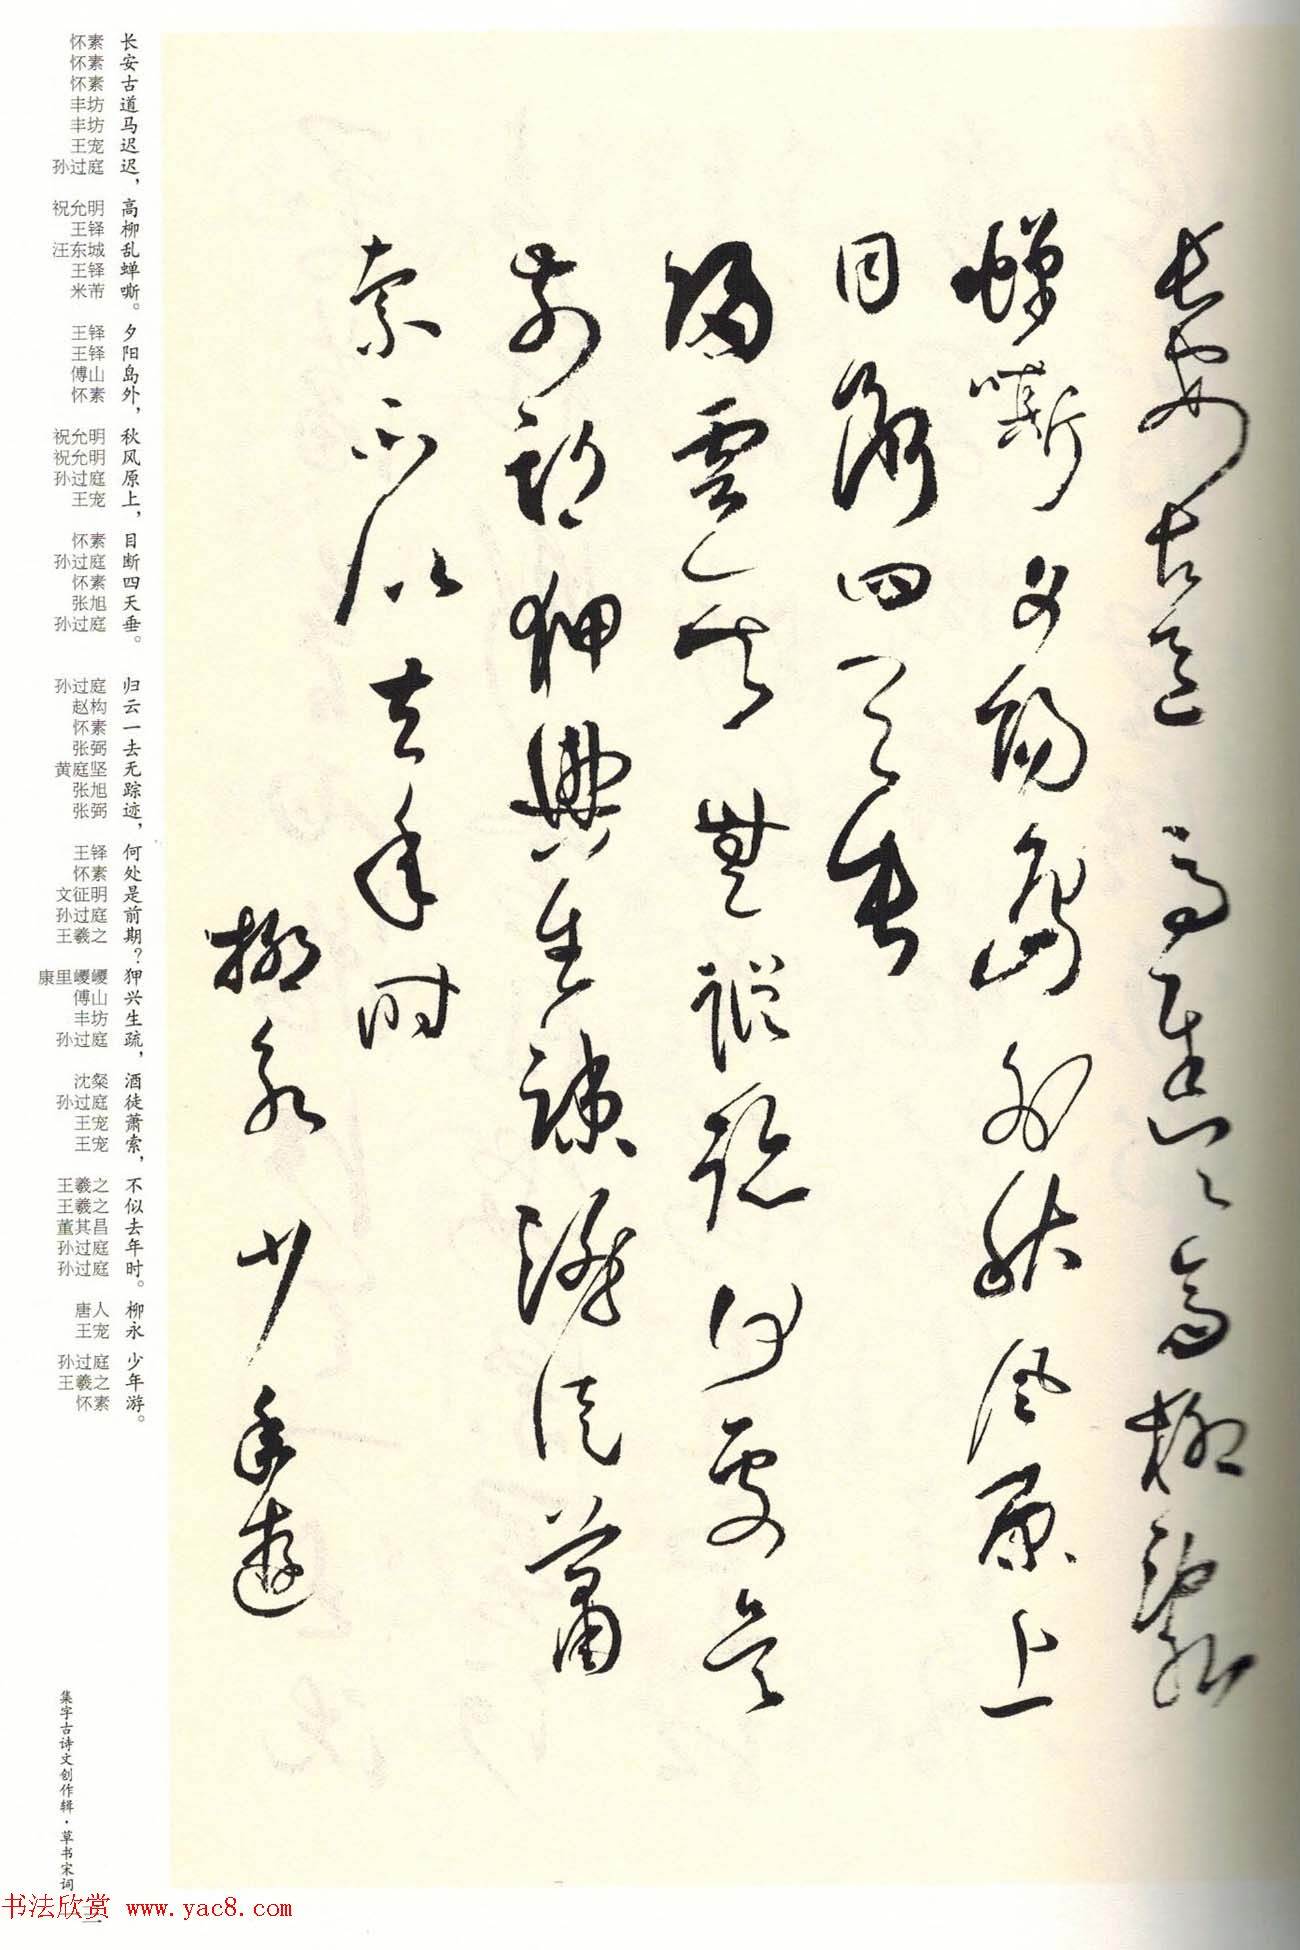 長安古道馬遲遲高柳亂
蟬嘶夕陽島外秋風原上
目斷四天垂
歸雲一去無蹤跡何處是
前期狎興生疎酒徒蕭
索不似去年時
柳永少年遊
长安古道马迟迟，高柳乱蝉嘶。夕阳岛外，秋风原上，目断四天垂。 归云一去无踪迹，何处是前期？狎兴生疏，酒徒萧索，不似去年时。 柳永 少年游。
怀素
怀素
怀素
丰坊
丰坊
王宠
孙过庭
祝允明
王铎
汪东城
王铎
米芾
王铎
王铎
傅山
怀素
祝允明
祝允明
孙过庭
王宠
怀素
孙过庭
怀素
张旭
孙过庭
孙过庭
赵构
怀素
张弼
黄庭坚
张旭
张弼
王铎
怀素
文征明
孙过庭
王羲之
康里巎巎
傅山
丰坊
孙过庭
沈粲
孙过庭
王宠
王宠
王羲之
王羲之
董其昌
孙过庭
孙过庭
唐人
王宠
孙过庭
王羲之
怀素
集字古诗文创作辑·草书宋词
书法欣赏 www.yac8.com